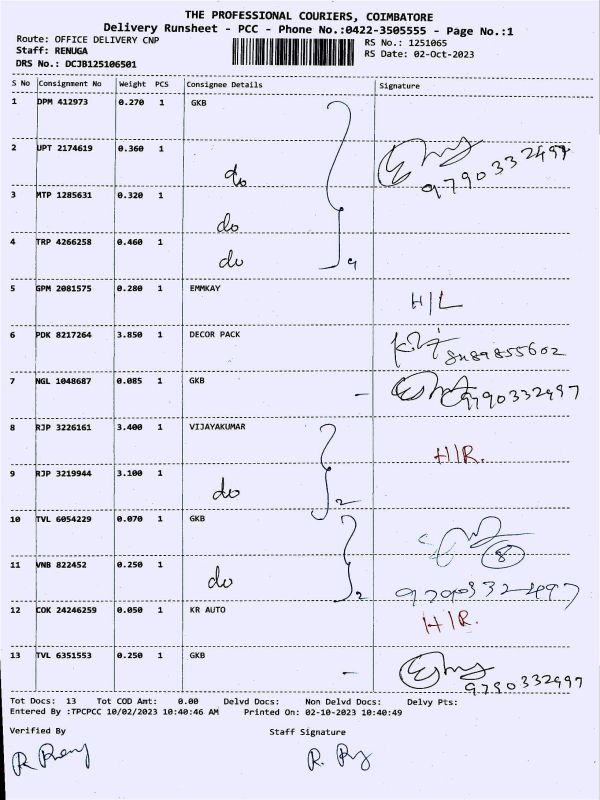 THE PROFESSIONAL COURIERS, COIMBATORE
Delivery Runsheet - PCC - Phone No.:0422-3505555 - Page No.:1
Route: OFFICE DELIVERY CNP RS No.: 1251065
Staff: RENUGA RS Date: 02-Oct-2023
DRS No.: DCJB125106501
S No Consignment No Weight PCS Consignee Details Signature
1 DPM 412973 0.270 1 GKB
2 UPT 2174619 0.360 1 do 9790332497
3 MTP 1285631 0.320 1 do
4 TRP 4266258 0.460 1 do 4
5 GPM 2081575 0.280 1 EMMKAY H/L
6 PDK 8217264 3.850 1 DECOR PACK
7 NGL 1048687 0.085 1 GKB - 9790332497
8 RJP 3226161 3.400 1 VIJAYAKUMAR H/R.
9 RJP 3219944 3.100 1 do 2
10 TVL 6054229 0.070 1 GKB 8
11 VNB 822452 0.250 1 do 2 9790332497
12 COK 24246259 0.050 1 KR AUTO H/R.
13 TVL 6351553 0.250 1 GKB - 9790332497
Tot Docs: 13 Tot COD Amt: 0.00 Delvd Docs: Non Delvd Docs: Delvy Pts:
Entered By :TPCPCC 10/02/2023 10:40:46 AM Printed On: 02-10-2023 10:40:49
Verified By Staff Signature